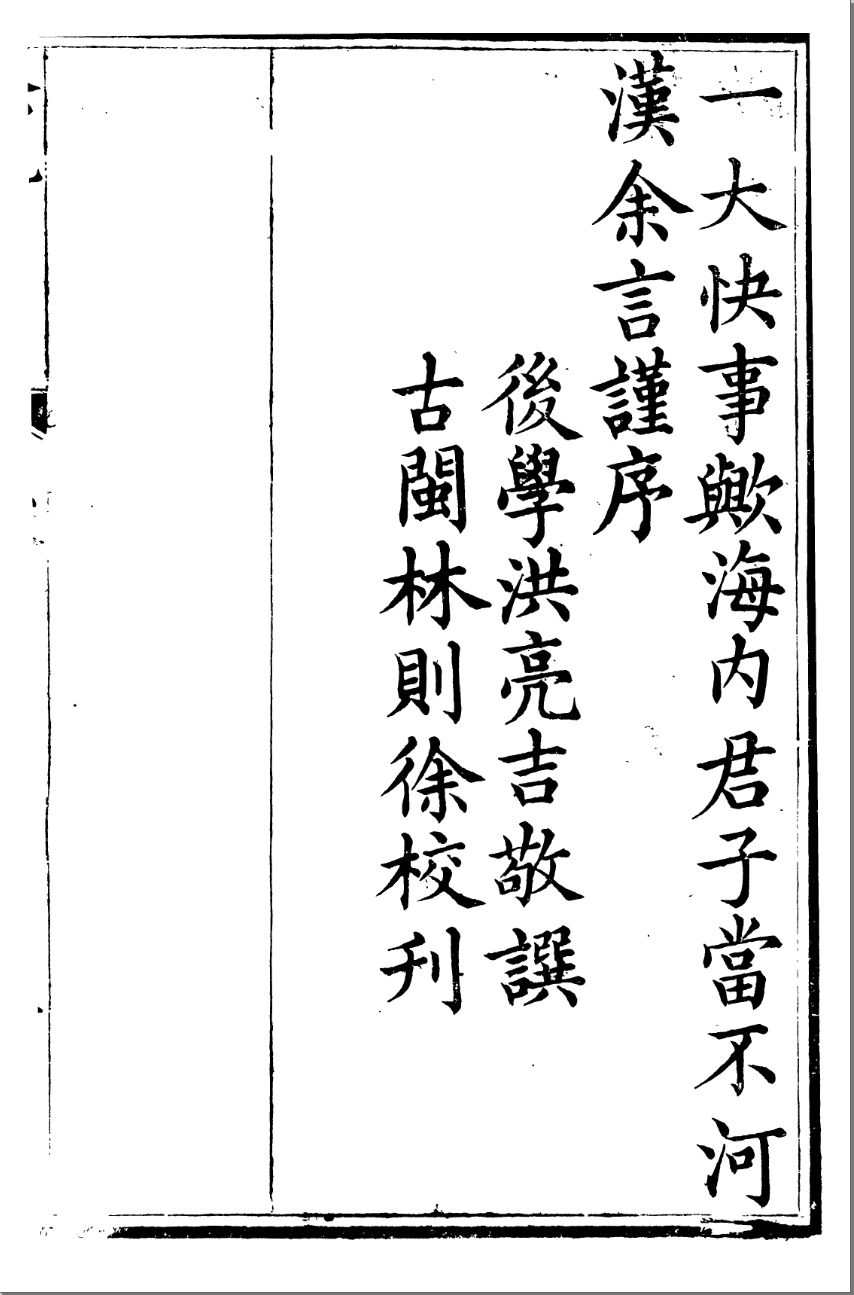 一大快事歟海内君子當不河
漢余言謹序
後學洪亮吉敬譔
古閩林則徐校刋